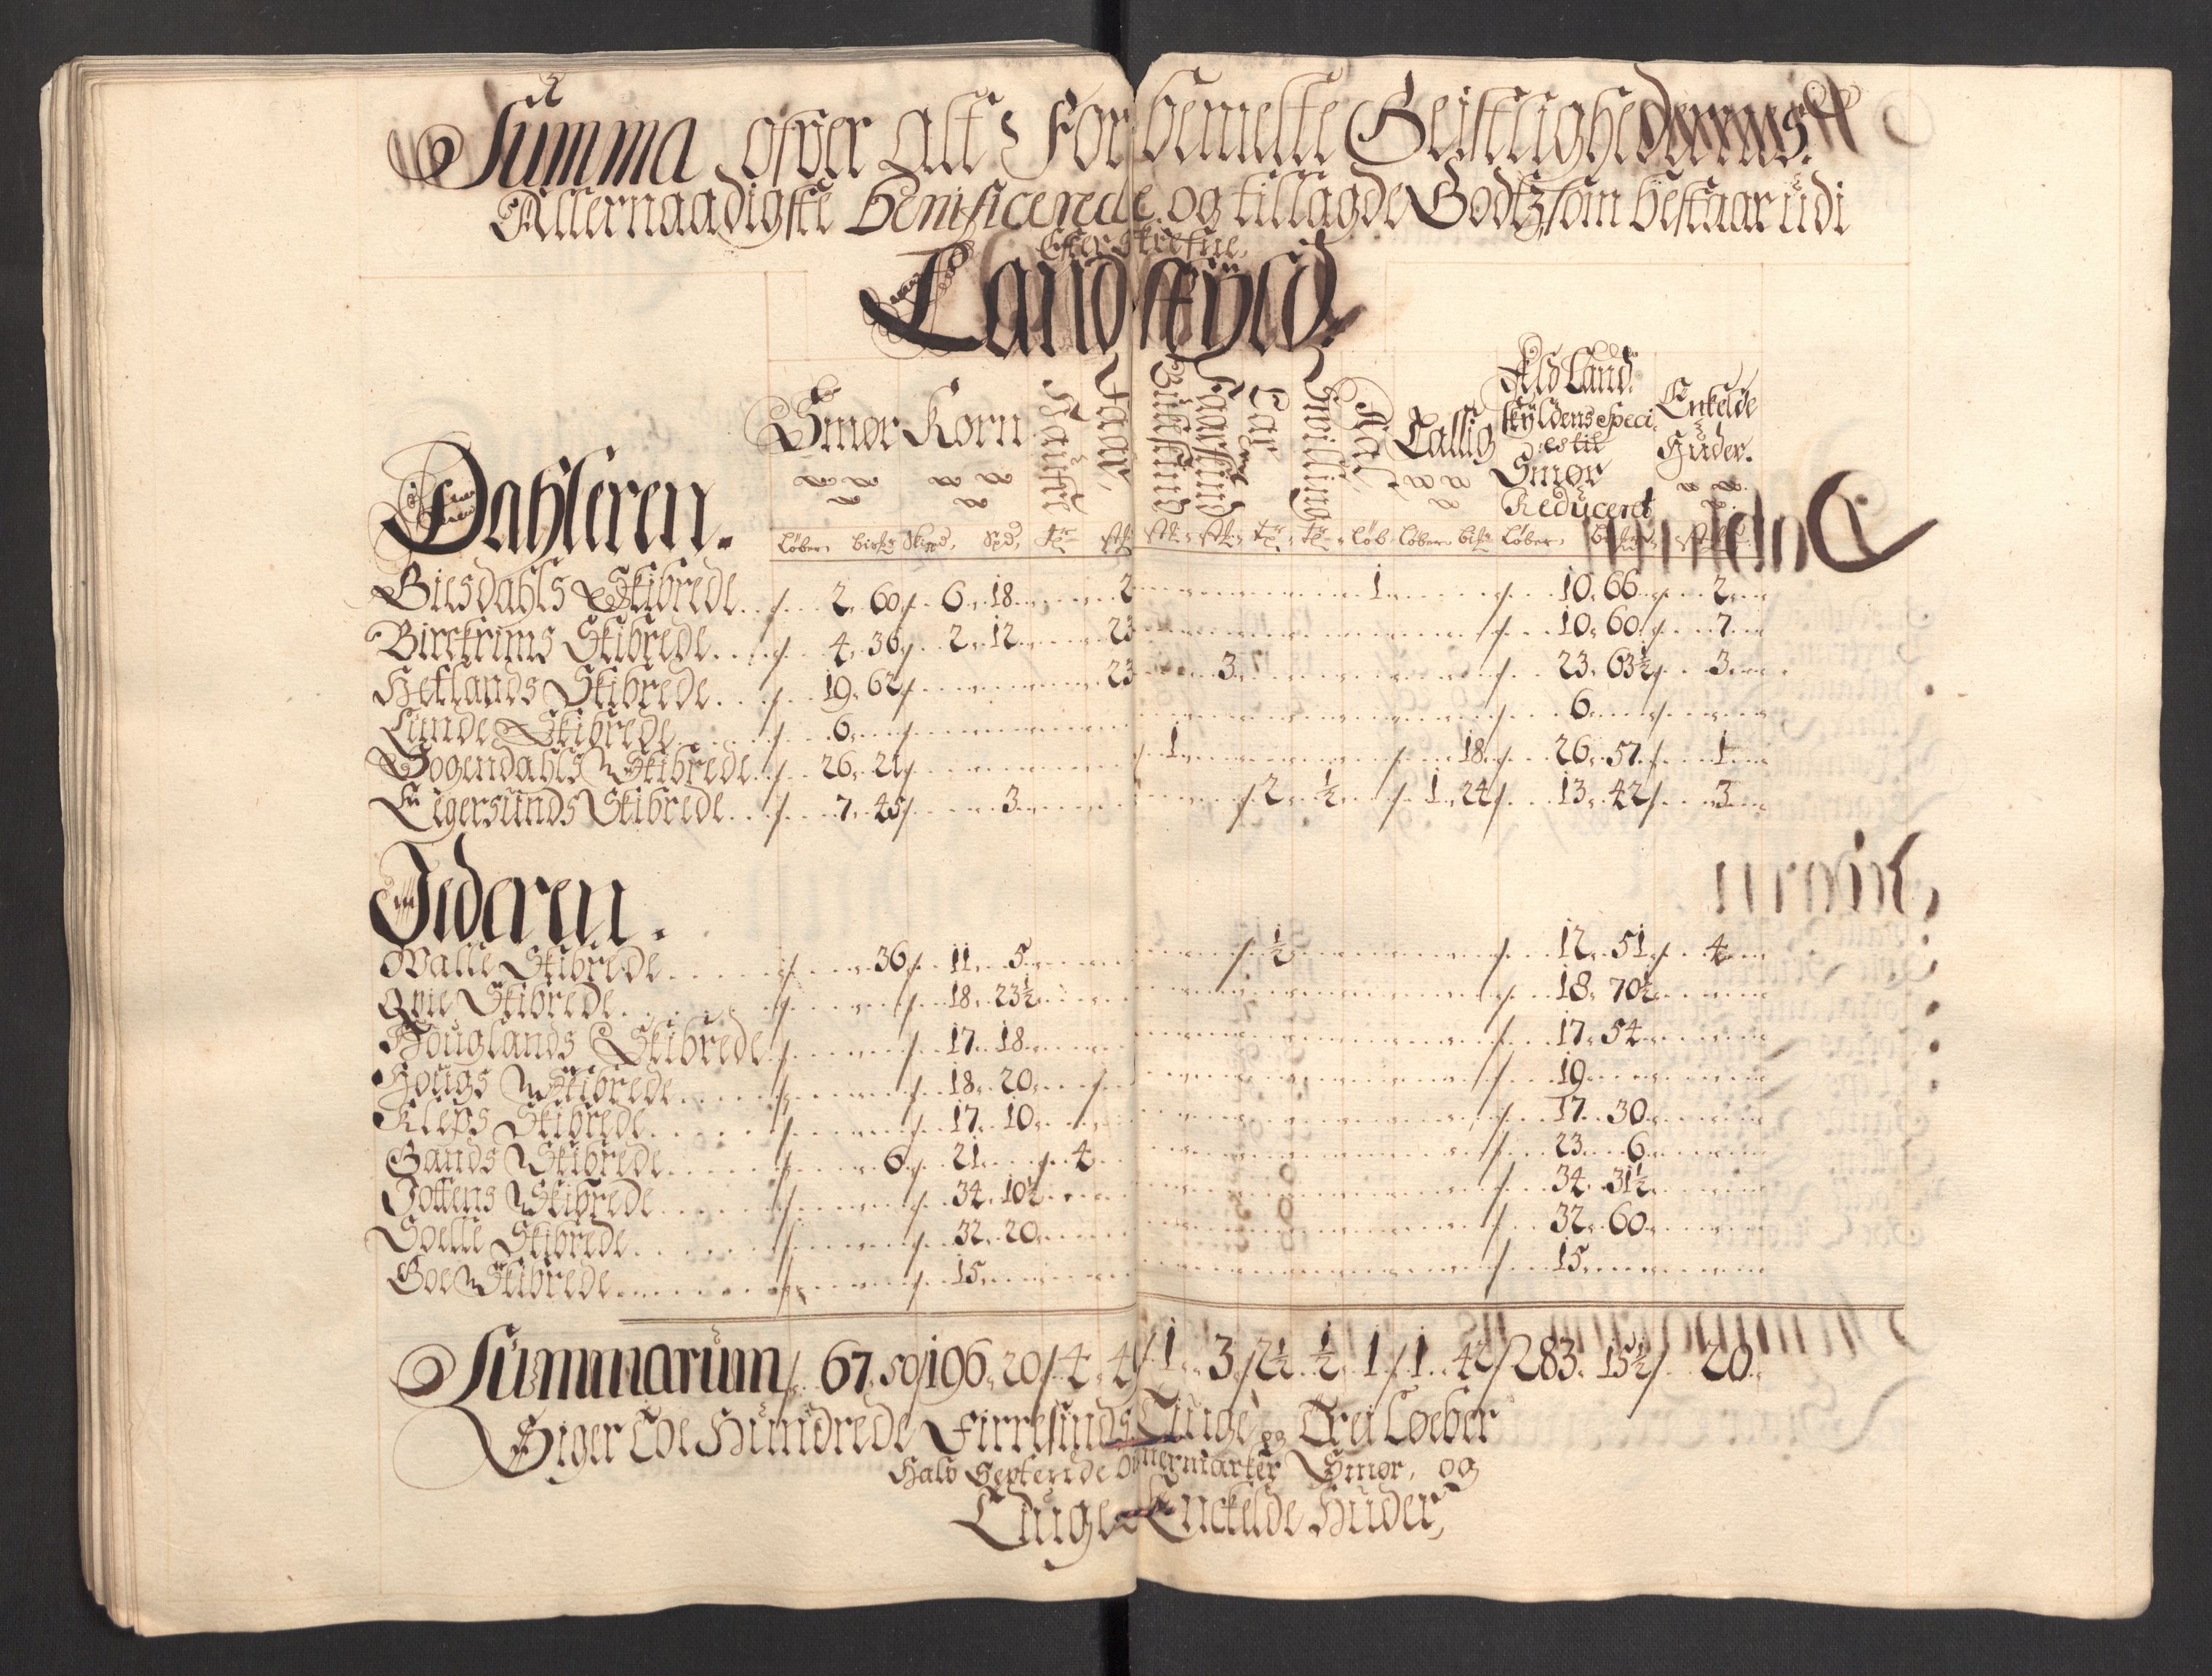 Summa ofver alt Forbemelte Geistlighedernes
Allernaadigste Benificerede og tillagde Godtz, som bestaar udi
Efterskrefne
Landskyld.
Smør Korn Faar, Tallig Ald Land- skyldens Speci- es til Smør Reduceret Enkelde Huder.
Dahleren.
Løber,
Giesdahls Skibrede . . 2, 60 6, 18 2 1 10, 66 2
Birckrims Skibrede . . 4, 36 2, 12 23 10, 60 7
Hetlands Skibrede . . 19, 62 23 3 23, 63½ 3
Lunde Skibrede . . 6 6
Sogendahls Skibrede . . 26, 21 1 18 26, 57 1
Egersunds Skibrede . . 7, 45 3 2 ½ 1, 24 13, 42 3
Jederen.
Walle Skibrede . . 36 11, 5 ½ 12, 51 4
Qvie Skibrede . . 18, 23½ 18, 70½
Houglands Skibrede 17, 18 17, 54
Hougs Skibrede . . 18, 20 19
Kleps Skibrede . . 17, 10 17, 30
Gands Skibrede . . 6 21 4 23, 6
Jottens Skibrede . . 34, 10½ 34, 31½
Soelle Skibrede . . 32, 20 32, 60
Goe Skibrede . . 15 15
Summarum 67, 50 196, 20 4 4 1 3 2½ ½ 1 1, 42 283, 15½ 20
Siger Toe Hundrede Firresinds Tuge og Trei Løeber
Halv Sextende Bismermarker Smør, og
Tuge Enckelde Huder,